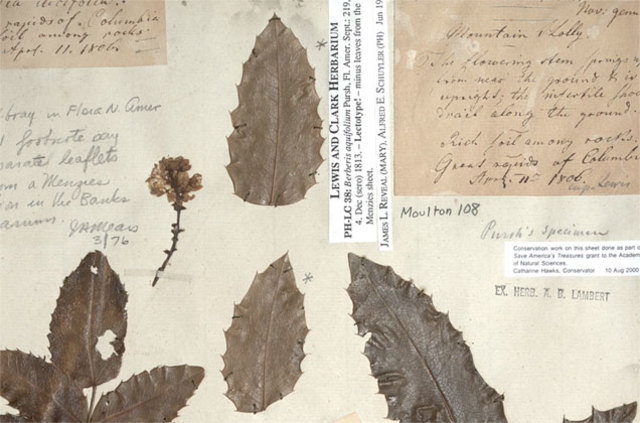 rapids of Columbia
soil among rocks.
Apr. 11. 1806.
bray in Flora N. Amer
footnote say
separate leaflets
from a Menzies
in the Banks
JRReveal
3/76
LEWIS AND CLARK HERBARIUM
PH-LC 38: Berberis aquifolium Pursh, Fl. Amer. Sept.: 219,
4. Dec (sero) 1813. – Lectotype! – minus leaves from the
Menzies sheet.
JAMES L. REVEAL (MARY), ALFRED E. SCHUYLER (PH) Jun 19
Nov: genu
Mountain Holly.
The flowering stem springs up
near the ground & is
upright; the infertile shoo
trail along the ground.
Rich soil among rocks,
Great rapids of Columbi
Apr. 11th 1806.
Lewis
Moulton 108
Pursh's specimen
Conservation work on this sheet done as part o
Save America's Treasures grant to the Academ
of Natural Sciences.
Catharine Hawks, Conservator 10 Aug 2000
EX. HERB. A. B. LAMBERT